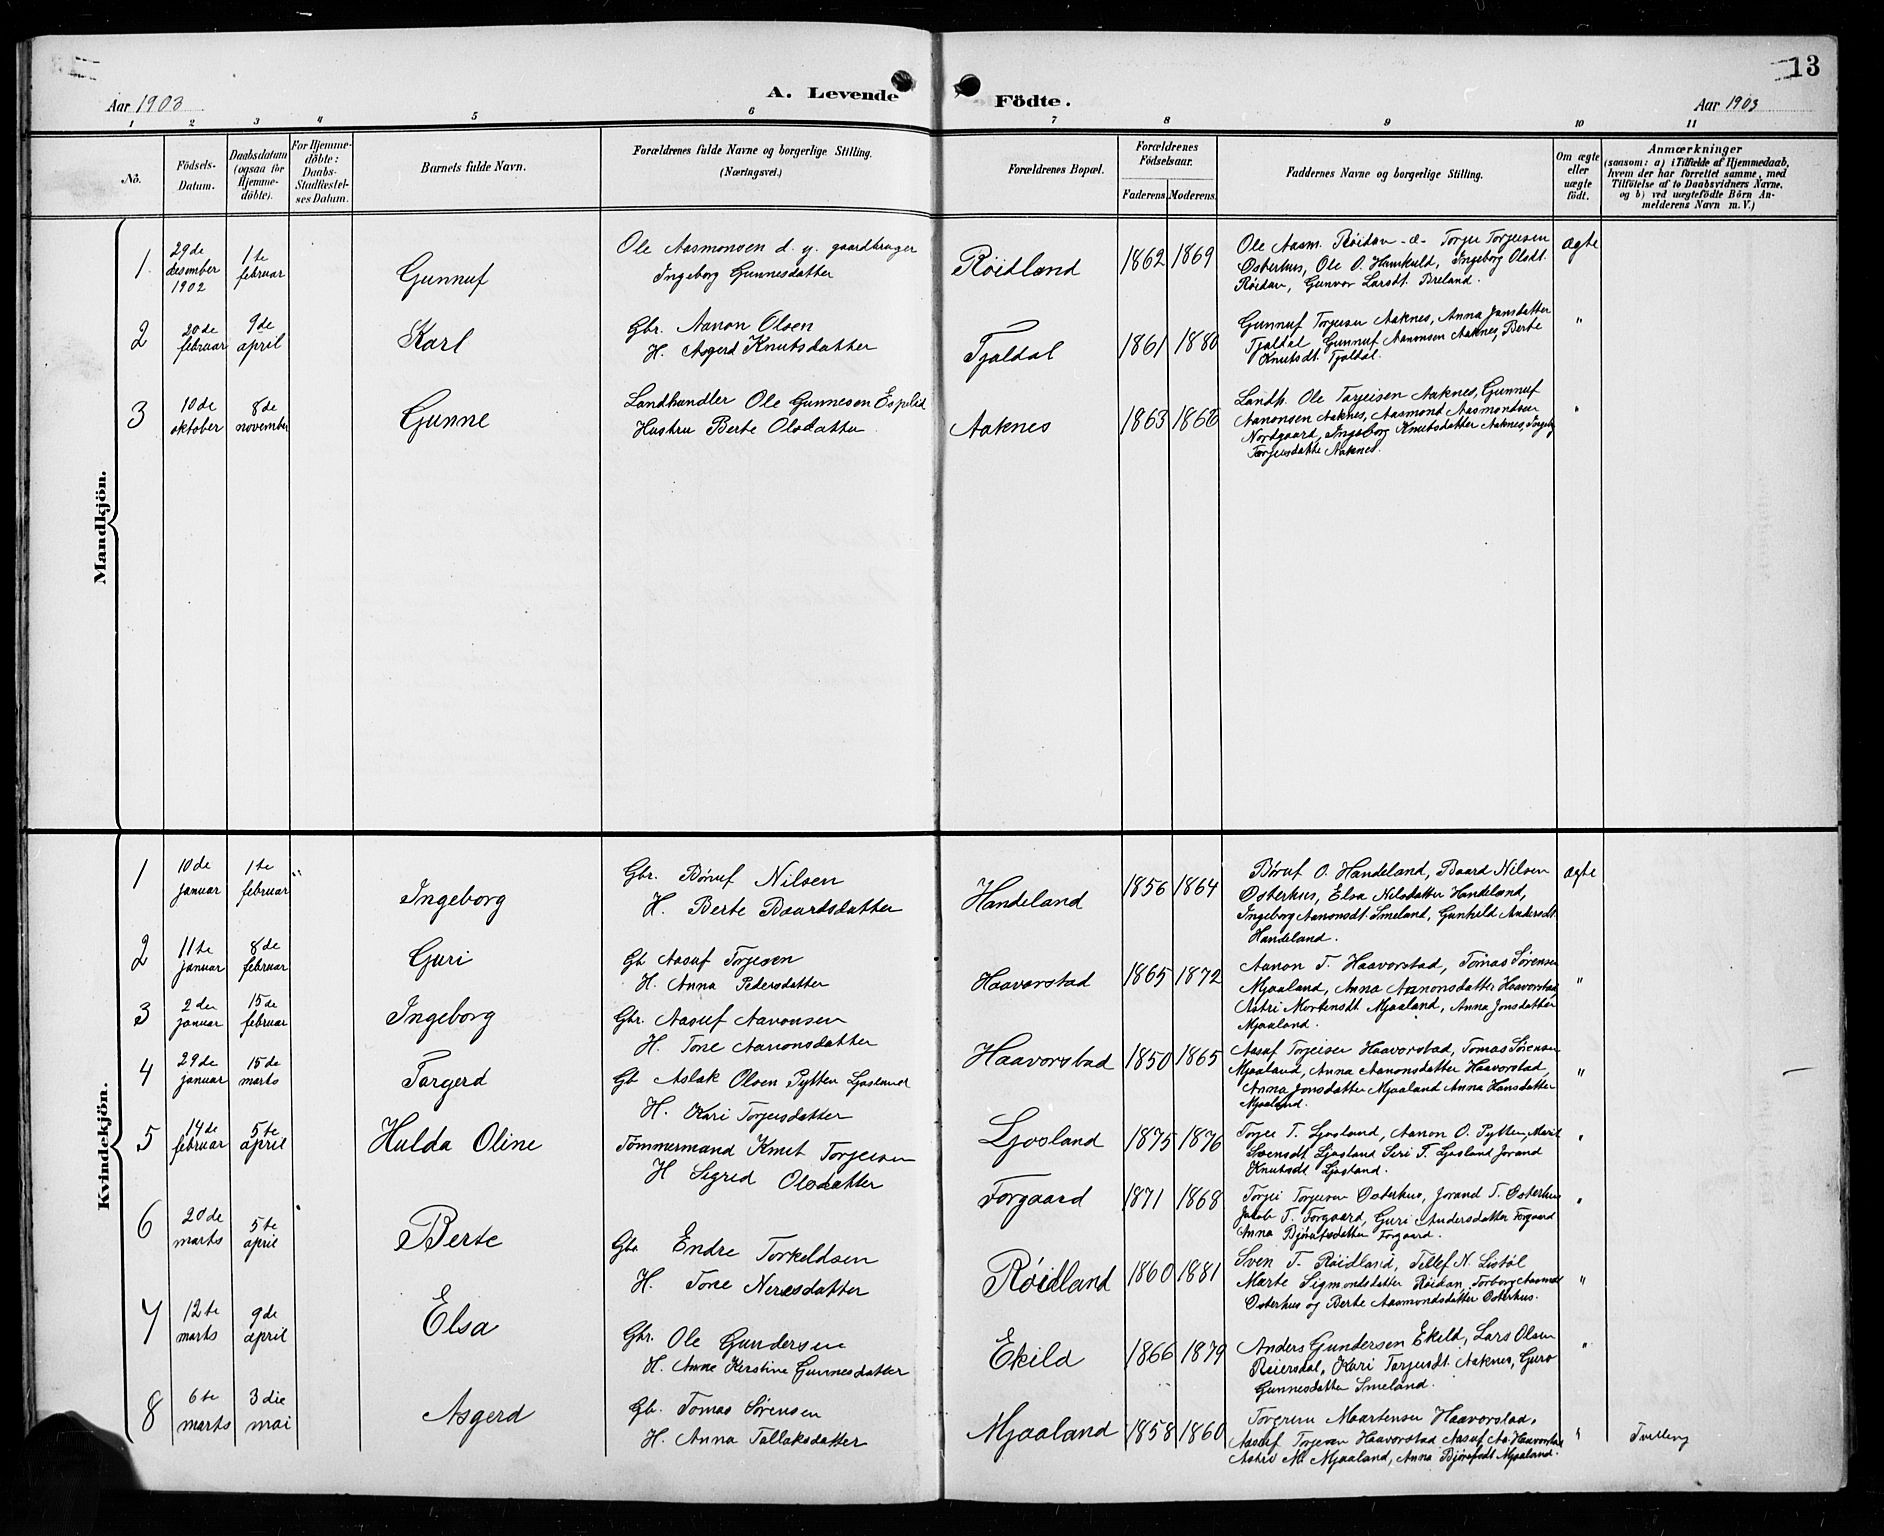 13
Aar 1903
A. Levende
Födte.
Aar 1903
1 2 3 4 5 6 7 8 9 10 11
No.
Födsels-
Datum.
Daabsdatum
(ogsaa for
Hjemme-
döbte).
For Hjemme-
döbte:
Daabs-
Stadfæstel-
ses Datum.
Barnets fulde Navn.
Forældrenes fulde Navne og borgerlige Stilling.
(Næringsvei.)
Forældrenes Bopæl.
Forældrenes
Födselsaar.
Faderens. Moderens.
Faddernes Navne og borgerlige Stilling.
Om ægte
eller
uægte
födt.
Anmærkninger
(saasom: a) i Tilfælde af Hjemmedaab,
hvem der har forrettet samme, med
Tilföielse af to Daabsvidners Navne,
og b) ved uægtefödte Börn An-
melderens Navn m. V.)
Mandkjön.
1.
29de
desember
1902
1te
februar
Gunnuf
Ole Aasmonsen d. y. gaardbruger
Ingeborg Gunnesdatter
Röidland
1862 1869
Ole Aasm. Röidan -d- Torjer Torjeisen
Osterhus, Ole O. Hamkuld, Ingeborg Olsdt.
Röidan, Gunvor Larsdt. Breland.
ægte
2
20de
februar
9de
april
Karl
Gbr. Aanon Olsen
H. Asgerd Knutsdatter
Tjaldal
1861 1880
Gunnuf Torjeisen Aaknes, Anna Jansdatter
Tjaldal Gunnuf Aanonsen Aaknes, Berte
Knutsdt. Tjaldal.
"
3
10de
oktober
8de
november
Gunne
Landhandler Ole Gunnesen Espelid
Hustru Berte Olsdatter
Aaknes
1863 1866
Landh. Ole Torjeisen Aaknes, Gunnuf
Aanonsen Aaknes, Aasmond Aasmondsen
Nordgaard, Ingeborg Knutsdatter Aaknes, Ingeb.
Torjeisdatte Aaknes.
"
Kvindekjön.
1
10de
januar
1te
februar
"
Ingeborg
Gbr. Böruf Nilsen
H. Berte Baardsdatter
Handeland
1856 1864
Böruf O. Handeland, Baard Nilsen
Osterhus, Elsa Nilsdatter Handeland,
Ingeborg Aanonsdt. Smeland, Gunhild Andersdt.
Handeland.
ægte
2
11te
januar
8de
februar
Guri
Gb Aasuf Torjesen
H. Anna Pedersdatter
Haavorstad
1865 1872
Aanon T. Haavorstad, Tomas Sörensen
Mjaaland, Anna Aanonsdatter Haavorstad
Astri Mortensdt Mjaaland, Anna Jonsdatter
Mjaaland.
"
3
2den
januar
15de
februar
Ingeborg
Gbr. Aasuf Aanonsen
H. Tone Aanonsdatter
Haavorstad
1850 1865
Aasuf Torjeisen Haavorstad, Tomas Sörensen
Mjaaland, Anna Aanonsdatter Haavorstad,
Anna Jonsdatter Mjaaland Anna Hansdatter
Mjaaland.
"
4
29de
januar
15de
marts
Torgerd
Gb Aslak Olsen Pytten Ljosland
H. Kari Torjusdatter
Ljosland
1875 1876
Torjer T. Ljosland, Aanon O. Pytten,
Svensdt Ljosland Siri T. Ljosland Jorand
Knutsdt Ljosland.
"
5
14de
februar
5te
april
Hulda Oline
Tömmermand Knut Torjeisen
H Sigrid Olsdatter
Forgaard
1871 1868
Torjei Torjeisen Osterhus, Jorand T. Osterhus
Jacob T. Forgaard, Guri Andersdatter Forgaard
Anna Björufsdatter Forgaard.
"
6
20de
marts
5te
april
Berte
Gbr Endre Torkeldsen
H. Tone Neresdatter
Röidland
1860 1881
Sven T. Röidland, Tellef N. Listöl
Marte Sigmondsdatter Röidan, Torborg Aasmdt
Osterhus og Berte Aasmondsdatter Osterhus.
"
7
12te
marts
9de
april
Elsa
Gbr. Ole Gundersen
H. Anne Kerstine Gunnesdatter
Ekild
1866 1879
Anders Gundersen Ekild, Lars Olsen
Reiersdal, Kari Torjusdt. Aaknes, Guro
Gunnesdatter Smeland.
"
8
6te
marts
3die
mai
Asgerd
Gb. Tomas Sörensen
H. Anna Tallaksdatter
Mjaaland
1858 1860
Torgrim Maartensen Haavorstad,
Aasuf Torjesen Haavorstad Aasuf Aa. Haavorstad
Astri M. Mjaaland, Anna Björufsdt Mjaaland.
"
Tvilling